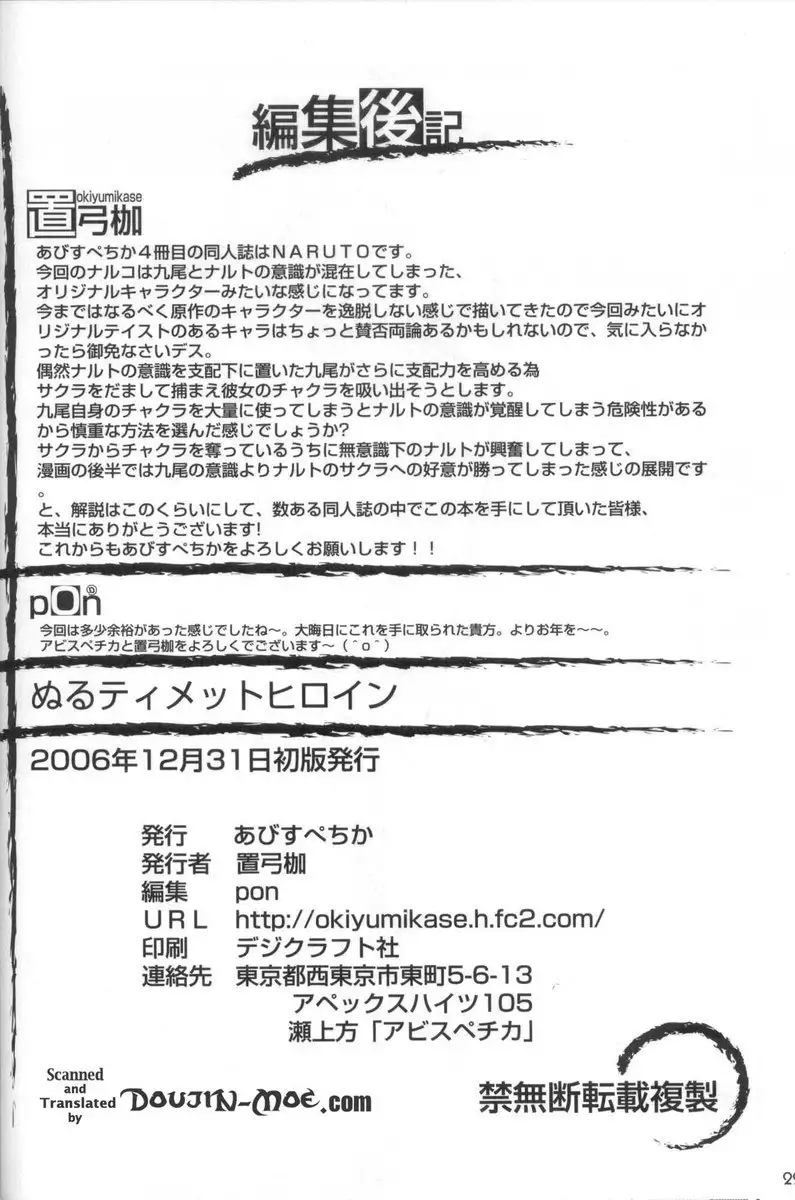 編集後記
okiyumikase
置弓枷
あびすぺちか４冊目の同人誌はＮＡＲＵＴＯです。
今回のナルコは九尾とナルトの意識が混在してしまった、
オリジナルキャラクターみたいな感じになってます。
今まではなるべく原作のキャラクターを逸脱しない感じで描いてきたので今回みたいにオ
リジナルテイストのあるキャラはちょっと賛否両論あるかもしれないので、気に入らなか
ったら御免なさいデス。
偶然ナルトの意識を支配下に置いた九尾がさらに支配力を高める為
サクラをだまして捕まえ彼女のチャクラを吸い出そうとします。
九尾自身のチャクラを大量に使ってしまうとナルトの意識が覚醒してしまう危険性がある
から慎重な方法を選んだ感じでしょうか?
サクラからチャクラを奪っているうちに無意識下のナルトが興奮してしまって、
漫画の後半では九尾の意識よりナルトのサクラへの好意が勝ってしまった感じの展開です
。
と、解説はこのくらいにして、数ある同人誌の中でこの本を手にして頂いた皆様、
本当にありがとうございます!
これからもあびすぺちかをよろしくお願いします！！
pOn
今回は多少余裕があった感じでしたね～。大晦日にこれを手に取られた貴方。よりお年を～～。
アビスペチカと置弓枷をよろしくでございます～（＾o＾）
ぬるティメットヒロイン
2006年12月31日初版発行
発行　あびすぺちか
発行者　置弓枷
編集　pon
ＵＲＬ　http://okiyumikase.h.fc2.com/
印刷　デジクラフト社
連絡先　東京都西東京市東町5-6-13
アペックスハイツ105
瀬上方「アビスペチカ」
Scanned
and
Translated
by
DOUJIN-MOE.com
禁無断転載複製